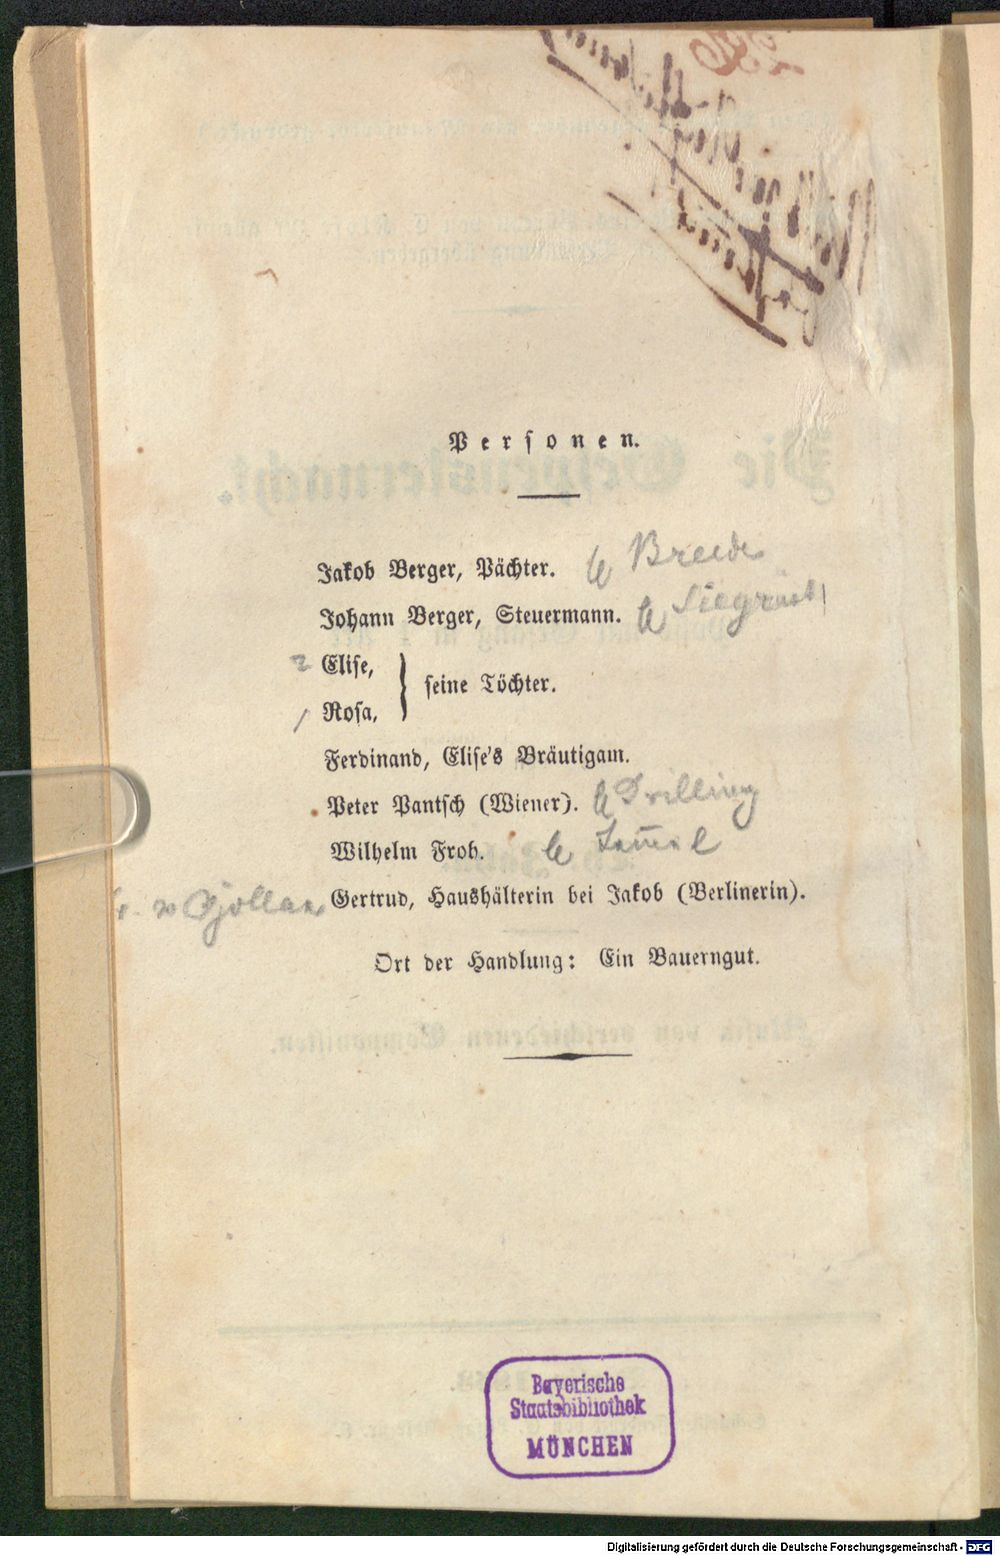 Personen.
Jakob Berger, Pächter. Breede
Johann Berger, Steuermann. Siegrist
2 Elise,
seine Töchter.
1 Rosa,
Ferdinand, Elise's Bräutigam.
Peter Pantsch (Wiener). Drilling
Wilhelm Froh.
Gertrud, Haushälterin bei Jakob (Berlinerin).
Ort der Handlung: Ein Bauerngut.
Bayerische
Staatsbibliothek
MÜNCHEN
Digitalisierung gefördert durch die Deutsche Forschungsgemeinschaft - DFG